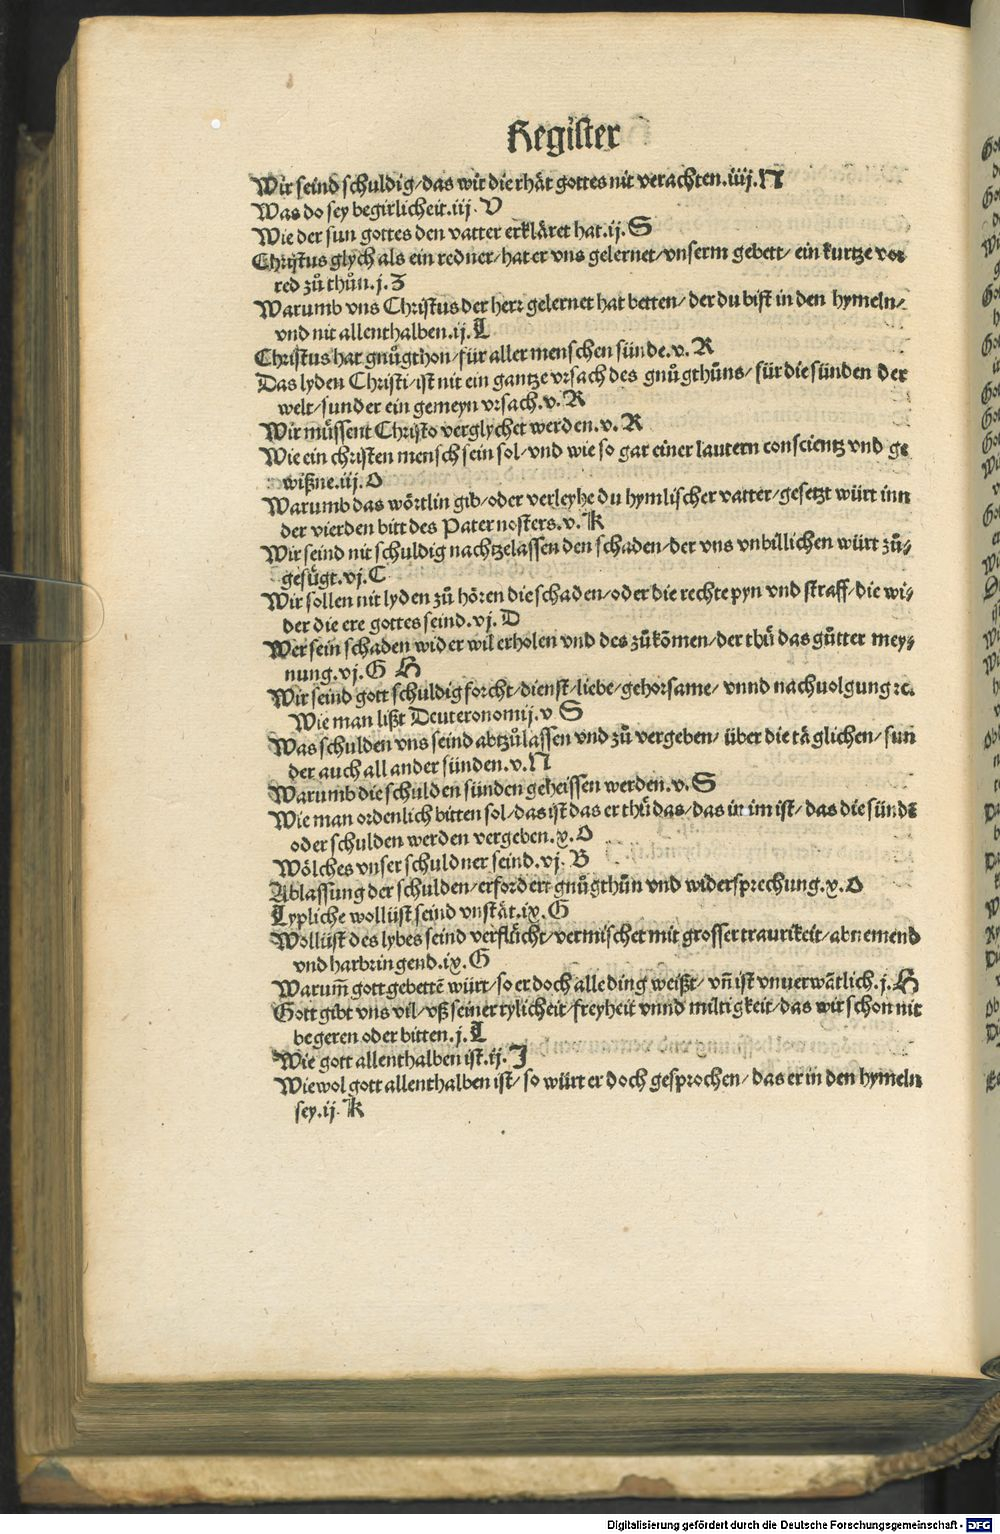 Register
Wir seind schuldig/das wir die rhät gottes nit verachten.iiij.N
Was do sey begirlicheit.iij. V
Wie der sun gottes den vatter erkläret hat.ij. S
Christus glych als ein redner/hat er vns gelernet/vnserm gebett/ ein kurtze vor
red zů thůn.j. Z
Warumb vns Christus der herr gelernet hat betten/ der du bist in den hymeln/
vnd nit allenthalben.ij. L
Christus hat gnůgthon/für aller menschen sünde.v. R
Das lyden Christi/ist nit ein gantze vrsach des gnůgthůns/ für die sünden der
welt/sunder ein gemeyn vrsach.v. R
Wir müssent Christo verglychet werden.v. R
Wie ein christen mensch sein sol/vnd wie so gar einer lautern conscientz vnd ge
wißne.iij. O
Warumb das wörtlin gib/oder verleyhe du hymlischer vatter/gesetzt würt inn
der vierden bitt des Pater nosters.v. K
Wir seind nit schuldig nachtzelassen den schaden/der vns vnbillichen würt zů/
gefügt.vj. C
Wir sollen nit lyden zů hören die schaden/oder die rechte pyn vnd straff/die wi/
der die ere gottes seind.vj. D
Wer sein schaden wider wil erholen vnd des zůkõmen/der thů das gůtter mey/
nung.vj. G H
Wir seind gott schuldig forcht/dienst/liebe/gehorsame/ vnnd nachuolgung ꝛc.
Wie man lißt Deuteronomij.v S
Was schulden vns seind abtzůlassen vnd zů vergeben/ über die täglichen/ sun
der auch all ander sünden.v. N
Warumb die schulden sünden geheissen werden.v. S
Wie man ordenlich bitten sol/das ist das er thů das/das in im ist/ das die sünde
oder schulden werden vergeben.x. O
Wölches vnser schuldner seind.vj. B
Ablassung der schulden/erfordert gnůgthůn vnd widersprechung.x. O
Lypliche wollüst seind vnstät.ix. G
Wollüst des lybes seind verflücht/vermischet mit grosser traurikeit/abnemend
vnd harbringend.ix. G
Warum̃ gott gebettẽ würt/so er doch alle ding weißt/ vñ ist vnuerwãtlich.j. H
Gott gibt vns vil/vß seiner tylicheit/freyheit vnnd miltigkeit/das wir schon nit
begeren oder bitten.j. L
Wie gott allenthalben ist.ij. J
Wiewol gott allenthalben ist/ so würt er doch gesprochen/ das er in den hymeln
sey.ij. K
Digitalisierung gefördert durch die Deutsche Forschungsgemeinschaft - DFG